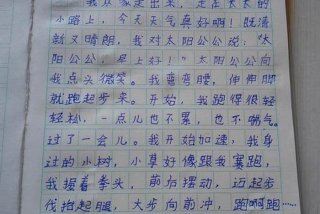 我从家走出来，走在长长的
小路上，今天天气真好啊！既清
新又晴朗，我对太阳公公说：“太
阳公公，早上好！”太阳公公向
我点头微笑。我弯弯腰，伸伸脚
就跑起步来。开始，我跑得很轻
轻松，一点儿也不累，也不喘气。
过了一会儿。我开始加速，我身
过的小树，小草好像跟我赛跑，
我握着拳头，前后摆动，迈起步
伐抬起腿，大步向前冲，跑啊跑……